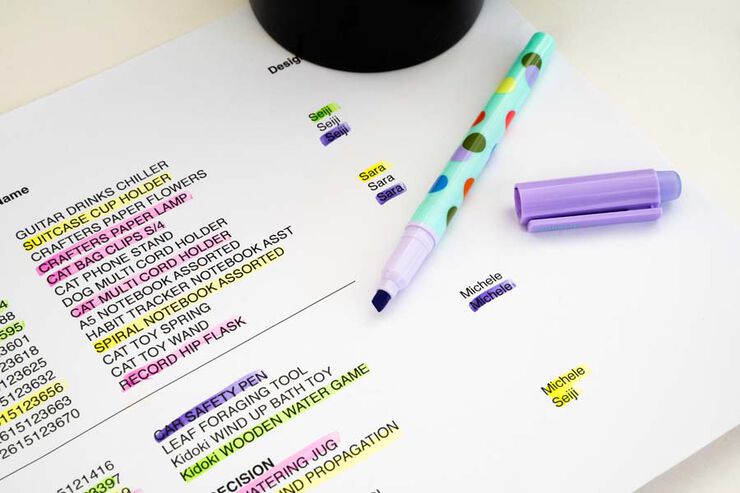 Design
Name
Seiji
Seiji
Seiji
Sara
Sara
Sara
Michele
Michele
Michele
Seiji
GUITAR DRINKS CHILLER
SUITCASE CUP HOLDER
CRAFTERS PAPER FLOWERS
CRAFTERS PAPER LAMP
CAT BAG CLIPS S/4
CAT PHONE STAND
DOG MULTI CORD HOLDER
CAT MULTI CORD HOLDER
A5 NOTEBOOK ASSORTED
HABIT TRACKER NOTEBOOK ASST
SPIRAL NOTEBOOK ASSORTED
CAT TOY SPRING
CAT TOY WAND
RECORD HIP FLASK
4
88
595
3601
23618
123625
5123632
615123656
2615123663
2615123670
CAR SAFETY PEN
LEAF FORAGING TOOL
Kidoki WIND UP BATH TOY
Kidoki WOODEN WATER GAME
ECISION
ATERING JUG
ND PROPAGATION
5121416
3397